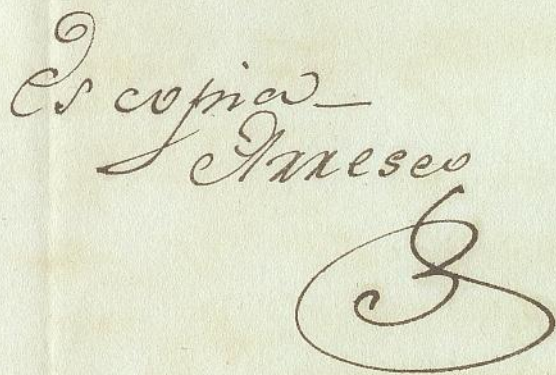 Es copia_
Arreseo